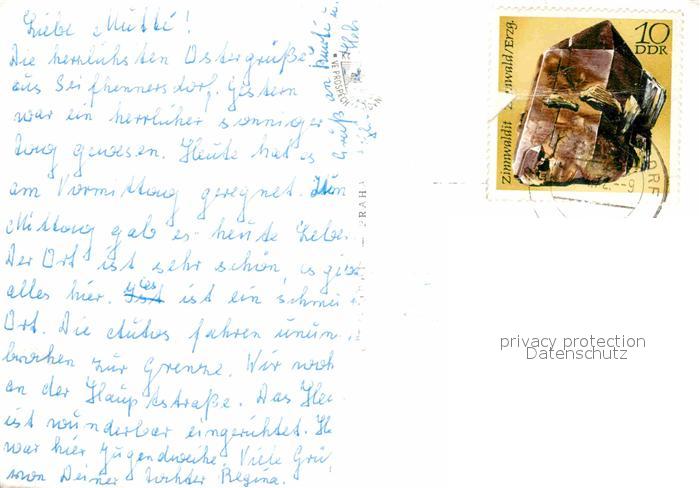 Liebe Mutti!
Die herrlichsten Ostergrüße
aus Seifhennersdorf. Gestern
war ein herrlicher sonniger
tag gewesen. Heute hat es
am Vormittag geregnet. Zum
Mittag gab es heute Leber.
Der Ort ist sehr schön, es gi
alles hier. Es ist ein schmu
Ort. Die Autos fahren unun
brochen zur Grenze. Wir woh
an der Hauptstraße. Das
ist wunderbar eingerichtet.
war hier Jugendweihe. Viele Grü
von Deiner Tochter Regina.
Gruß an
PRAHA
10
DDR
Zinnwaldit Zinnwald/Erzg.
privacy protection
Datenschutz